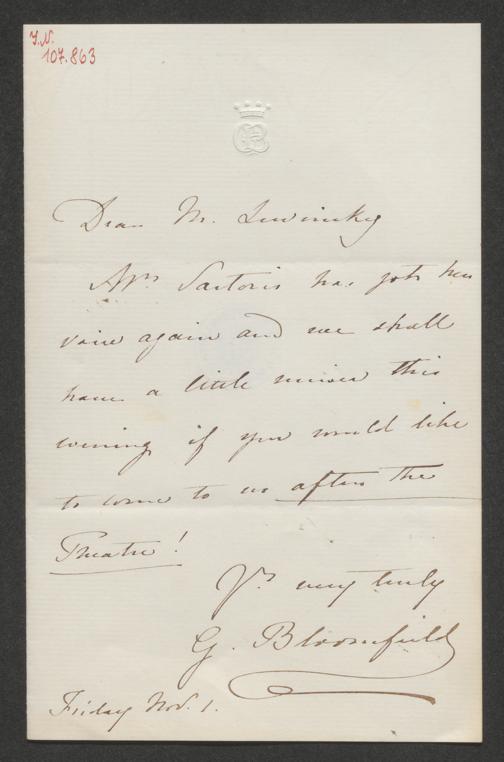 I.N.
107.863
Dear Mr. Lewinsky
Mrs Sartoris has got her
voice again and we shall
have a little music this
evening if you would like
to come to us after the
Theatre!
Yrs very truly
G. Bloomfield
Friday Nov. 1.